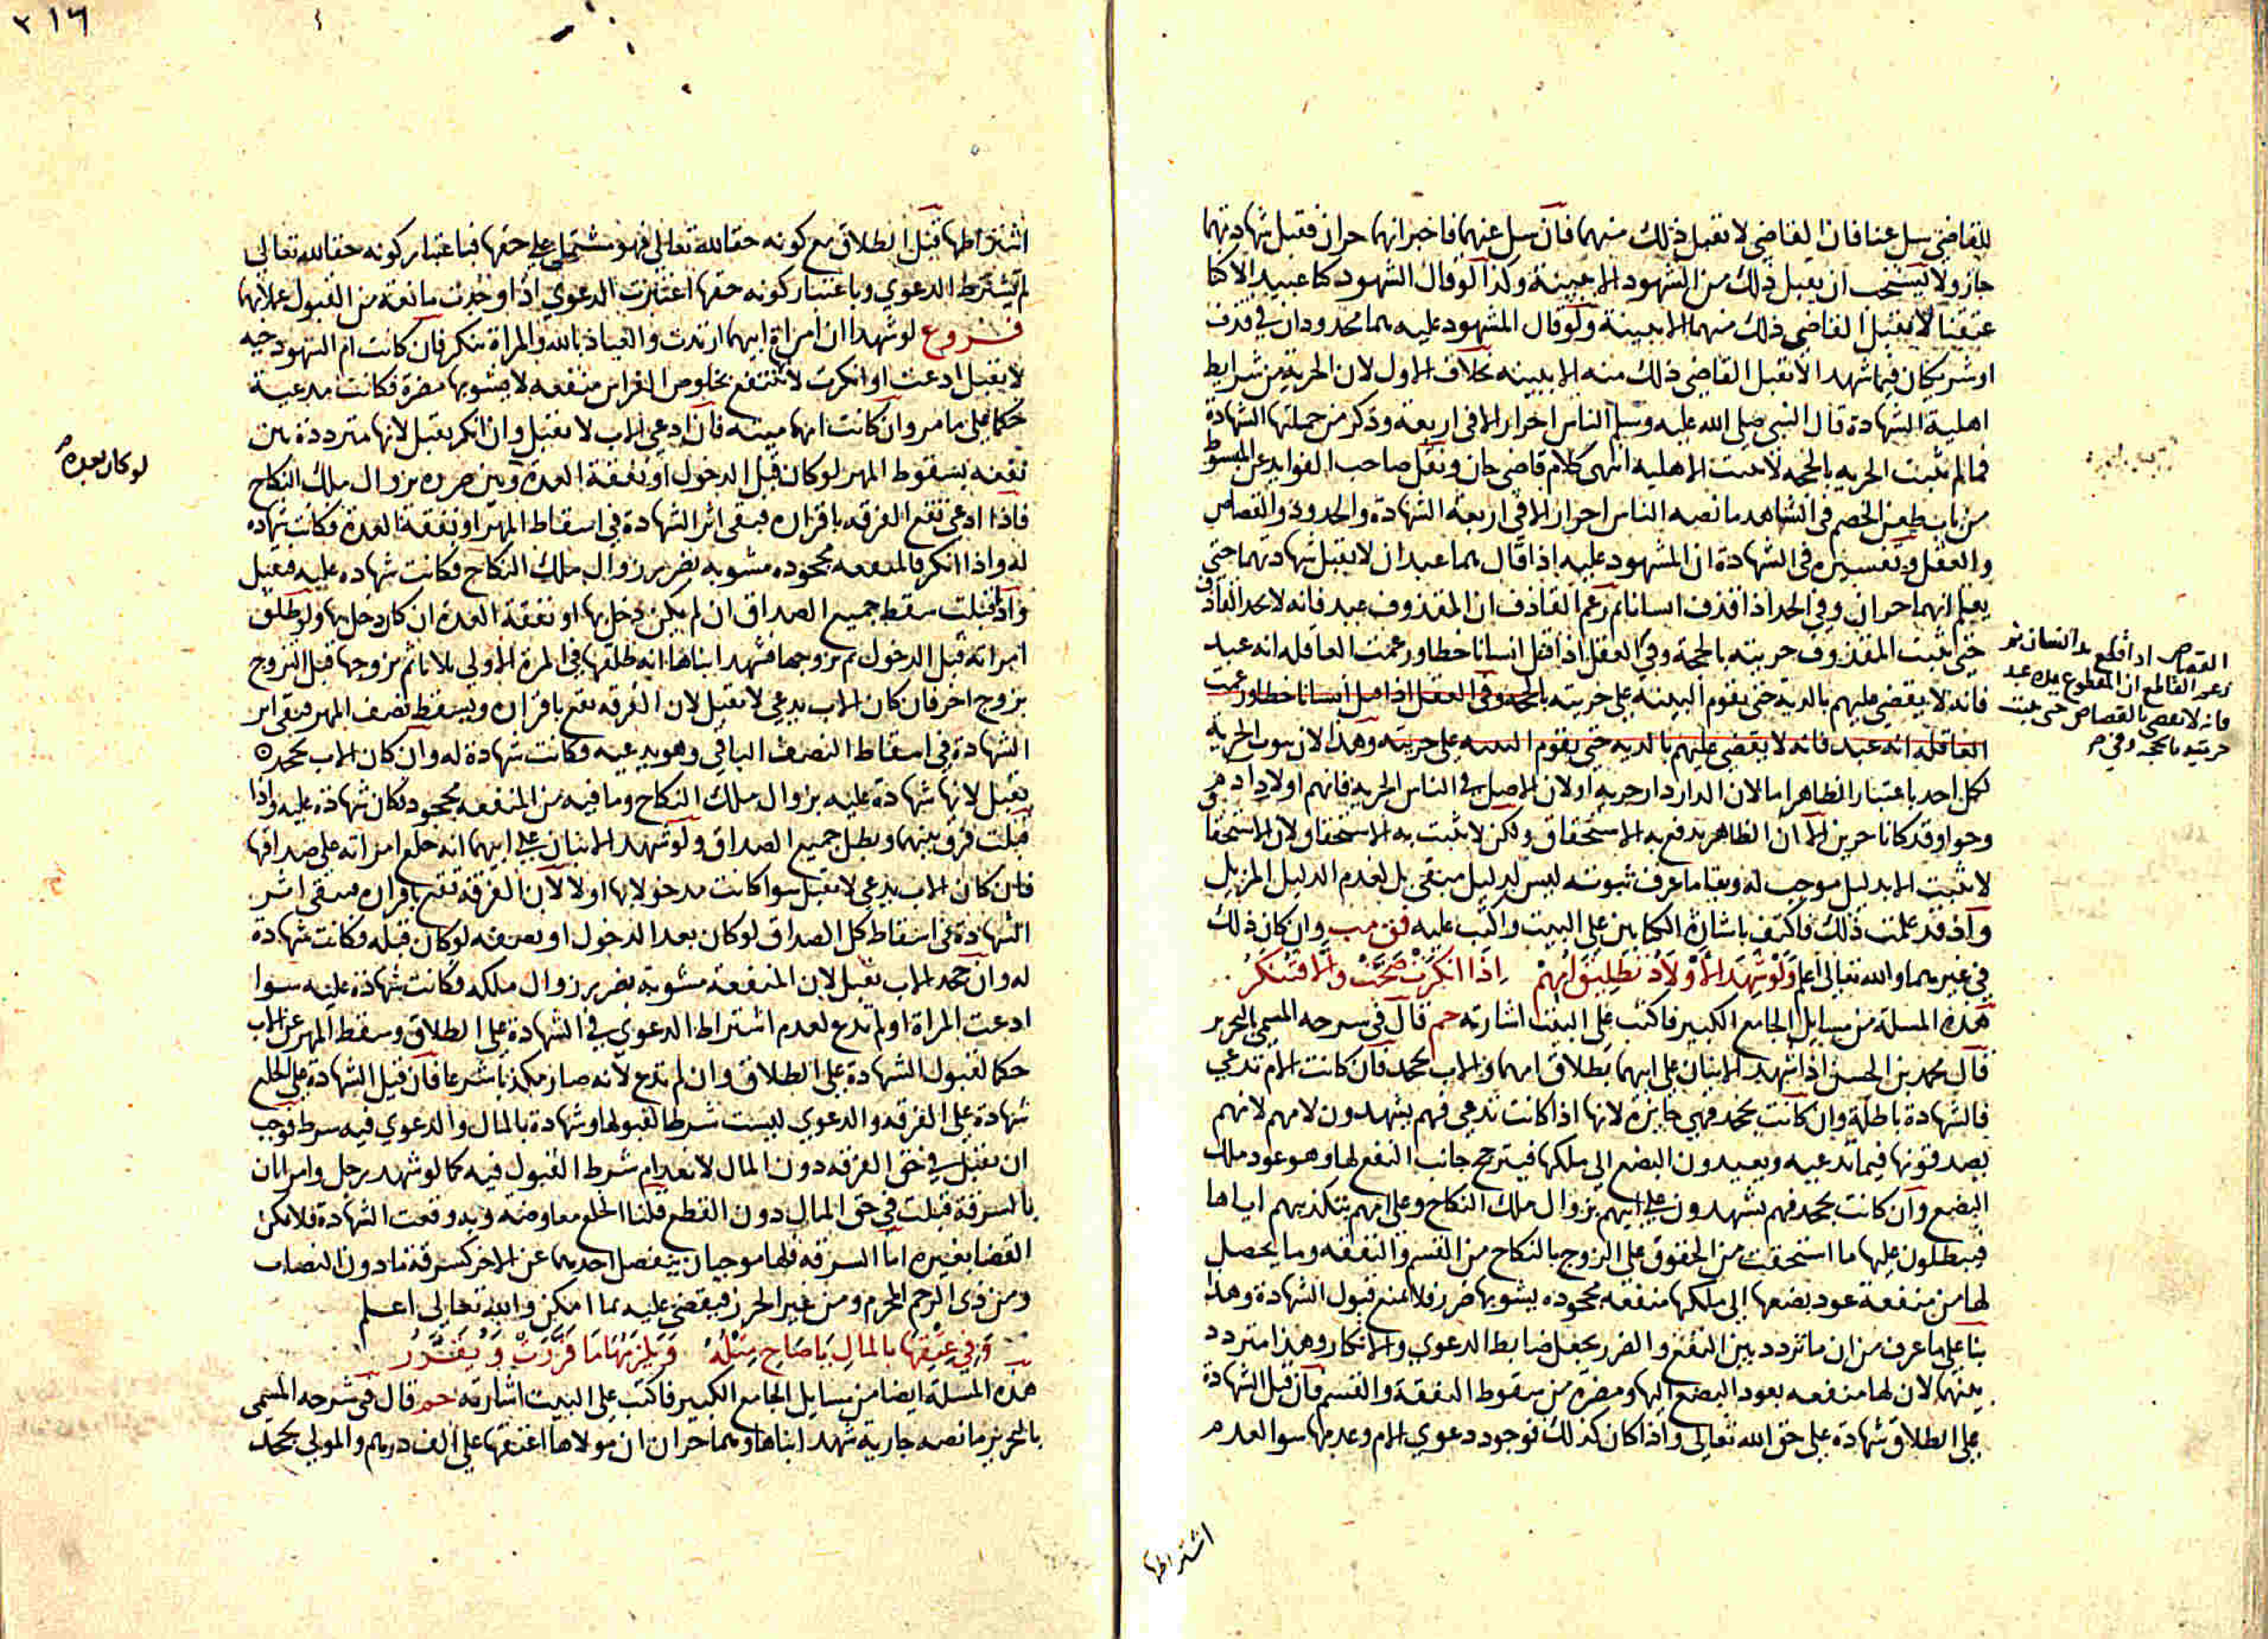 للقاضي سل عنا فان القاضي لا تقبل ذلك منهما فان سل عنهما فاخبر انهما حران فقبل شهادتهما
جاز ولا يستحب ان يقبل ذلك من الشهود الا ببينة وكذا لو قال الشهود كنا عبيد الا انا
عتقنا لا يقبل القاضي ذلك منهما الا ببينة ولو قال المشهود عليه هما محدودان في قذف
او شريكان فيما شهدا لا يقبل القاضي ذلك منه الا ببينه بخلاف الاول لان الحرية من شرايط
اهلية الشهادة قال النبي صلى الله عليه وسلم الناس احرار الا في اربعة وذكر من جملتها الشهادة
فما لم تثبت الحريه بالحجه لا تثبت الاهليه انتهى كلام قاضي خان ونقل صاحب الفوايد عن المبسوط
من باب طعن الخصم في الشاهد ما نصه الناس احرار الا في اربعة الشهادة والحدود والقصاص
والعقل وتفسيره في الشهادة ان المشهود عليه اذا قال هما عبدان لا يقبل شهادتهما حتى
يعلم انهما حران وفي الحد اذا قذف انسانا ثم زعم القاذف ان المقذوف عبد فانه لا يحد القاذف
حتى تثبت المقذوف حريته بالحجة وفي العقل اذا قتل انسانا خطا وزعمت العاقله انه عبد
فانه لا يقضي عليهم بالديه حتى يقوم البينه على حريته بالحجه وفي العقل اذا قتل انسانا خطا وزعمت
العاقله انه عبد فانه لا يقضى عليهم بالديه حتى يقوم البينه على حريته وهذا لان ثبوت الحرية
لكل احد باعتبار الظاهر اما لان الدار دار حرية او لان الاصل في الناس الحرية فانهم اولاد ادم
وحوا وقد كانا حرين الا ان الظاهر يدفع به الاستحقاق ولكن لا يثبت به الاستحقاق لان الاستحقا
لا يثبت الا بدليل موجب له وبقا ما عرف ثبوته ليس لدليل مبقي بل لعدم الدليل المزيل
واذ قد علمت ذلك فاكتف باشارة الكتابين على البيت واكتب عليه فق مب وان كان ذلك
في غيرهما والله تعالى اعلم وَلَوْ شَهِدَ الأَوْلَادُ تَطْلِيقَ أُمِّهِمْ إِذَا أنكرَتْ صَحَّتْ وَإِلَّا فَتُنْكَرُ
هذه المسلة من مسايل الجامع الكبير فاكتب على البيت اشارته حم قال في شرحه المسمى بالتحرير
قال محمد بن الحسن اذا شهد الابنان على ابيهما بطلاق امهما والاب يجحد فان كانت الام تدعي
فالشهادة باطلة وان كانت تجحد فهي جايزة لانها اذا كانت تدعي فهم يشهدون لامهم لانهم
يصدقونها فيما تدعيه ويعيدون البضع الى ملكها فيترجح جانب النفع لها وهو عود ملك
البضع وان كانت تجحد فهم يشهدون على ابيهم بزوال ملك النكاح وعلى امهم بتكذيبهم اياها
فيبطلون عليها ما استحقت من الحقوق على الزوج بالنكاح من القسم والنفقه وما يحصل
لها من منفعة عود بضعها الى ملكها منفعه مجحوده يشوبها ضرر فلا تمنع قبول الشهادة وهذا
بنا على ما عرف من ان ما تردد بين النفع والضرر يجعل ضابط الدعوي والانكار وهذا متردد
بينهما لان لها منفعه بعود البضع اليها ومضرة من سقوط النفقة والقسم فان قيل الشهادة
على الطلاق شهادة على حق الله تعالى واذا كان كذلك فوجود دعوي الام وعدمها سوا لعدم
القصاص اذا قطع يد انسان ثم
زعم القاطع ان المقطوع يده عبد
فانه لا يقضى بالقصاص حتى تثبت
حريته بالحجه وفي
اشتراطها
٣١٦
اشتراطها قبل الطلاق مع كونه حقا لله تعالى فهو مشتمل على حقها فباعتبار كونه حقا لله تعالى
لم تشترط الدعوي وباعتبار كونه حقها اعتبرت الدعوي اذا وجدت مانعة من القبول عملا بهما
فروع لو شهدا ان امراة ابيهما ارتدت والعياذ بالله والمراة تنكر فان كانت ام الشهود حيه
لا يقبل ادعت او انكرت لانها تنتفع بخلوص الفراش منفعه لا يشوبها مضرة فكانت مدعية
حكما على ما مر وان كانت امهما ميته فان ادعي الاب لا تقبل وان انكر يقبل لانها مترددة بين
نفعه بسقوط المهر لو كان قبل الدخول او نفقة العدة وبين ضرره بزوال ملك النكاح
فاذا ادعي تقع الفرقه باقراره فيبقى اثر الشهادة في اسقاط المهر او نفقة العدة فكانت شهاده
له واذا انكر فالمنفعه مجحوده مشوبه بضرر زوال ملك النكاح فكانت شهاده عليه فتقبل
واذا قبلت سقط جميع الصداق ان لم يكن دخل بها او نفقة العدة ان كان دخل بها ولو طلق
امراته قبل الدخول ثم تزوجها فشهد ابناها انه طلقها في المرة الاولى ثلاثا ثم تزوجها قبل التزوج
بزوج اخر فان كان الاب يدعي لا تقبل لان الفرقه تقع باقراره ويسقط نصف المهر فيبقى اثر
الشهادة في اسقاط النصف الباقي وهو يدعيه فكانت شهادة له وان كان الاب يجحد
يقبل لانها شهادة عليه بزوال ملك النكاح وما فيه من المنفعه مجحود فكان شهادة عليه واذا
قبلت فرق بينهما وبطل جميع الصداق ولو شهد الابنان على ابيهما انه خلع امراته على صداقها
فان كان الاب يدعي لا تقبل سوا كانت مدخولا بها او لا لان الفرقة تقع باقراره فيبقى اثر
الشهادة في اسقاط كل الصداق لو كان بعد الدخول او نصفه لو كان قبله فكانت شهادة
له وان جحد الاب تقبل لان المنفعة مشوبة بضرر زوال ملكه فكانت شهادة عليه سوا
ادعت المراة او لم تدع لعدم اشتراط الدعوي في الشهادة على الطلاق وسقط المهر عن الاب
حكما لقبول الشهادة على الطلاق وان لم تدع لانه صار مكذبا شرعا فان قيل الشهادة على الخلع
شهادة على الفرقه والدعوي ليست شرطا لقبولها وشهادة بالمال والدعوي فيه شرط فوجب
ان تقبل في حق الفرقه دون المال لانعدام شرط القبول فيه كما لو شهد رجل وامراتان
بالسرقة قبلت في حق المال دون القطع قلنا الخلع معاوضة وبه وقعت الشهادة فلا يمكن
القضا بغيره اما السرقه فلها موجبان ينفصل احدهما عن الاخر كسرقة ما دون النصاب
ومن ذي الرحم المحرم ومن غير الحرز فيقضى عليه بما امكن والله تعالى اعلم
وَفِي عِتْقِهَا بِالمالِ يَا صَاحِ مِثْلُهُ وَيَلْزَمُهَا مَا قَرَّرَتْ وَيُقَرَّرُ
هذه المسلة ايضا من مسايل الجامع الكبير فاكتب على البيت اشارته حم قال في شرحه المسمى
بالتحرير ما نصه جارية شهد ابناها وهما حران ان مولاها اعتقها على الف درهم والمولى يجحد
لو كان بعده